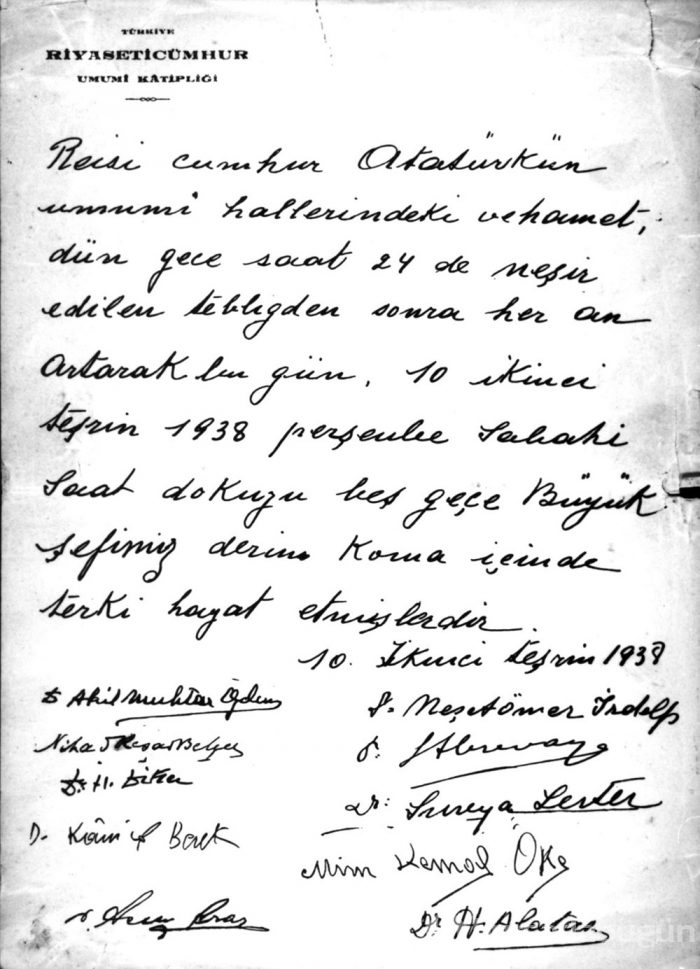 TÜRKİYE
RİYASETİCÜMHUR
UMUMÎ KÂTİPLİĞİ
Reisi cumhur Atatürkün
umumî hallerindeki vehamet,
dün gece saat 24 de neşir
edilen tebligden sonra her an
artarak bu gün, 10 ikinci
teşrin 1938 perşenbe sabahi
saat dokuzu beş geçe Büyük
şefimiz derin koma içinde
terki hayat etmişlerdir.
10. İkinci teşrin 1938
Dr Akil Muhtar Özden
Dr. Neşetömer İrdelp
Nihad Reşad Belger
Dr.
Dr. H.
Dr: Sureya
D. Kâmil Berk
Mim Kemal Öke
Dr H. Alataş